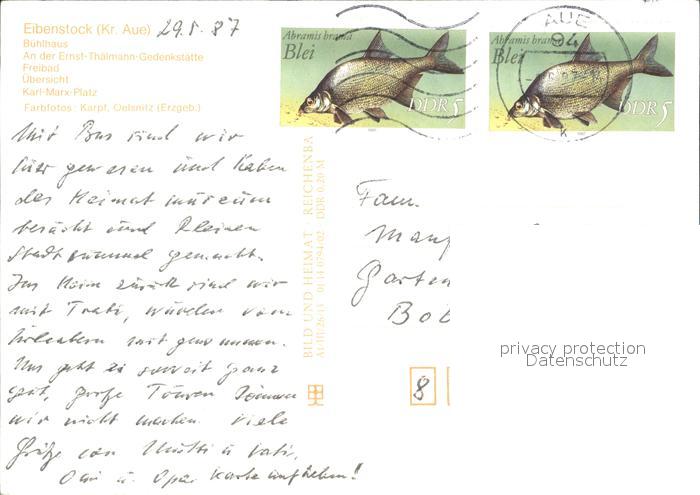 Eibenstock (Kr. Aue) 29.8.87
Bühlhaus
An der Ernst-Thälmann-Gedenkstätte
Freibad
Übersicht
Karl-Marx-Platz
Farbfotos: Karpf, Oelsnitz (Erzgeb.)
Mit Bus sind wir
hier gewesen und haben
des Heimatmuseum
besucht und kleinen
Stadtbummel gemacht.
Ins Heim zurück sind wir
mit Trabi, wurden vom
mitgenommen.
Uns geht es soweit ganz
gut, große Touren können
wir nicht machen. Viele
Grüße von Mutti u. Vati,
Omi u. Opa. Karte aufheben!
BILD UND HEIMAT REICHENBA
A1/III/26/13 01 14 0794-02 DDR 0,20 M
Abramis brama
Blei
DDR 5
Abramis brama
Blei
DDR 5
AUE
94
k
Fam.
Manf
Garten
Bo
8
privacy protection
Datenschutz